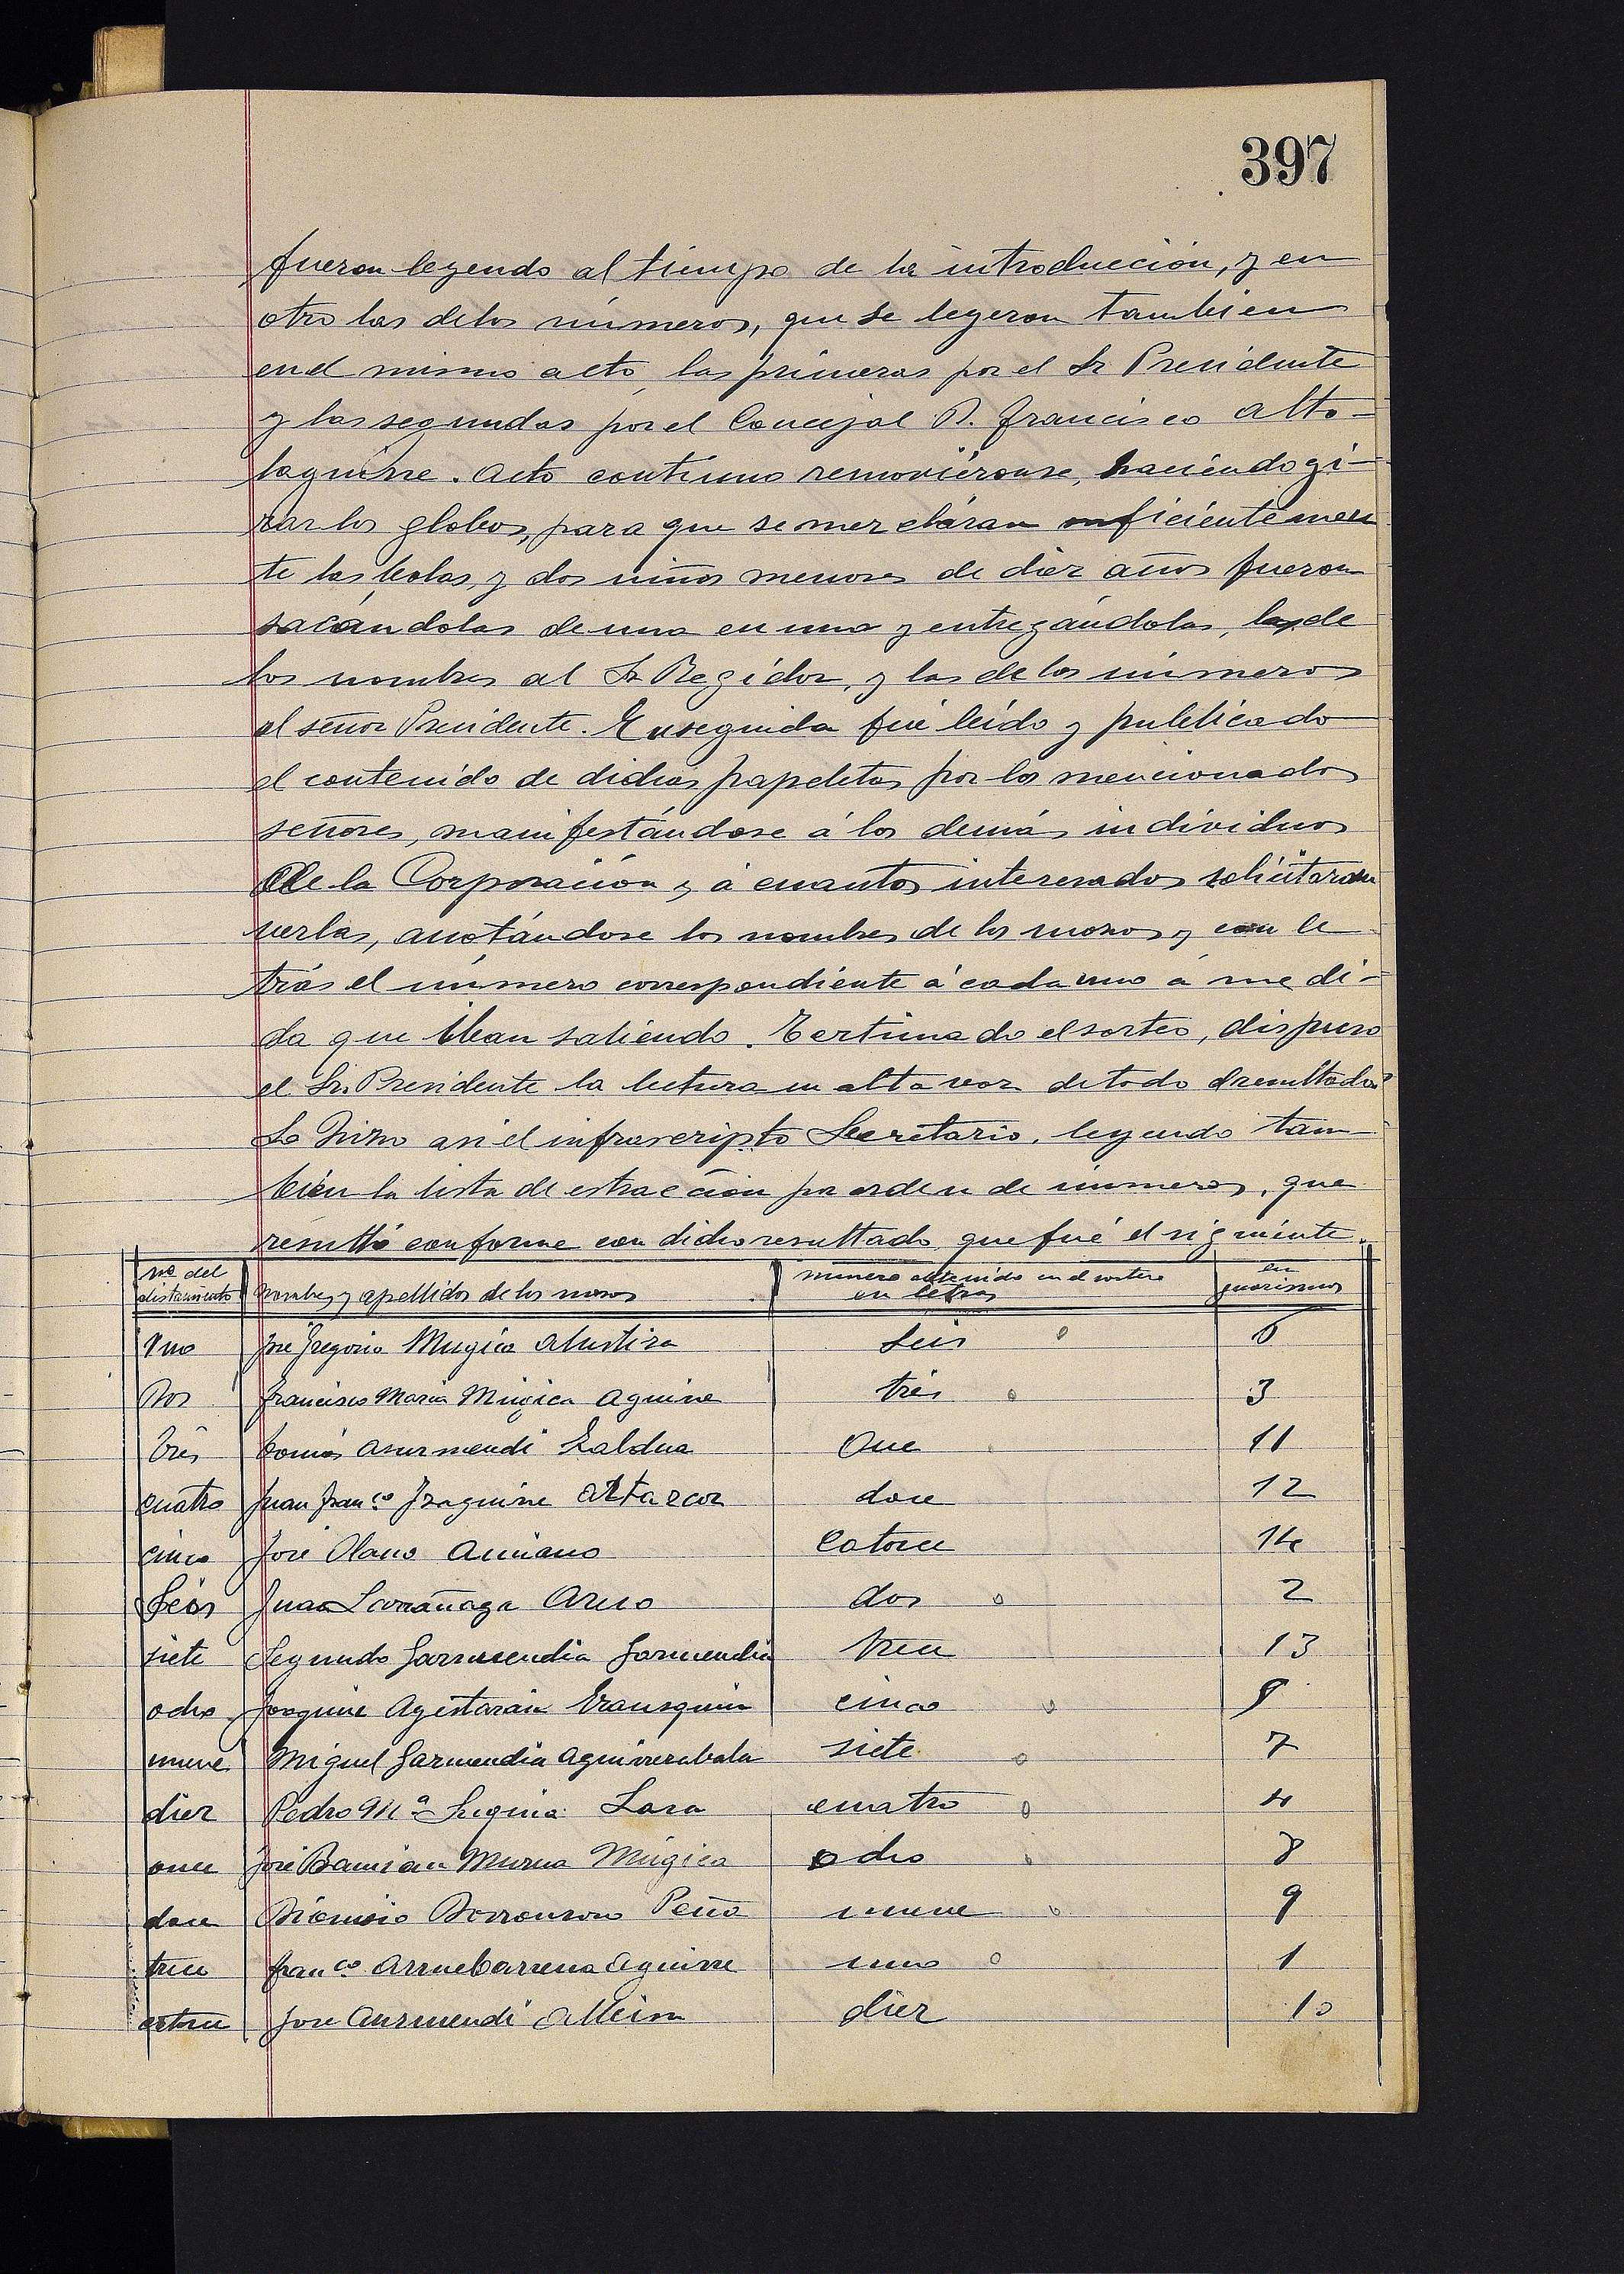 397
fueron leyendo al tiempo de la introducción, y en
otro las delos números, que se leyeron tambien
en el mismo acto, las primeras por el Sr Presidente
y las segundas por el Concejal D. Francisco Alto-
laguirre. Acto contínuo removiéronse, haciendo gi-
rar los globos, para que se mezcláran suficientemen
te las bolas, y dos niños menores de diez años fueron
sacándolas de una en una y entregándolas, las de
los nombres al Sr Regidor, y las de los números
al señor Presidente. Enseguida fué leido y publicado
el contenido de dichas papeletas por los mencionados
señores, manifestándose á los demás individuos
de la Corporación y á cuantos interesados solicitaran
verlas, anotándose los nombres de los mozos y con le
tras el número correspondiente á cada uno á medi-
da que iban saliendo. Terminado el sorteo, dispuso
el Sr. Presidente la lectura en alta voz de todo el resultado.
Lo hizo asi el infrascripto Secretario, leyendo tam
bién la lista de estracción por orden de números, que
resultó conforme con dicho resultado, que fué el siguiente.
no. del alistamiento | Nombres y apellidos de los mozos | número obtenido en el sorteo en letras | en guarismos
Uno José Gregorio Mugica Alustiza Seis 6
Dos Francisco Maria Mugica Aguirre tres 3
Tres Tomás Asurmendi Zaldua Once 11
cuatro Juan Fran.co Izaguirre Altazcor doce 12
cinco José Olano Amiano Catorce 14
Seis Juan Larrañaga Arno dos 2
siete Segundo Garmendia Garmendia trece 13
ocho Joaquin Agestarain Erausquin cinco 5
nueve Miguel Garmendia Aguirrezabala siete 7
diez Pedro M.a Seguia Lasa cuatro 4
once José Damian Murua Mugica ocho 8
doce Dionisio Borronsoro Peña nueve 9
trece Fran.co Arruebarrena Aguirre uno 1
catorce José Asurmendi diez 10